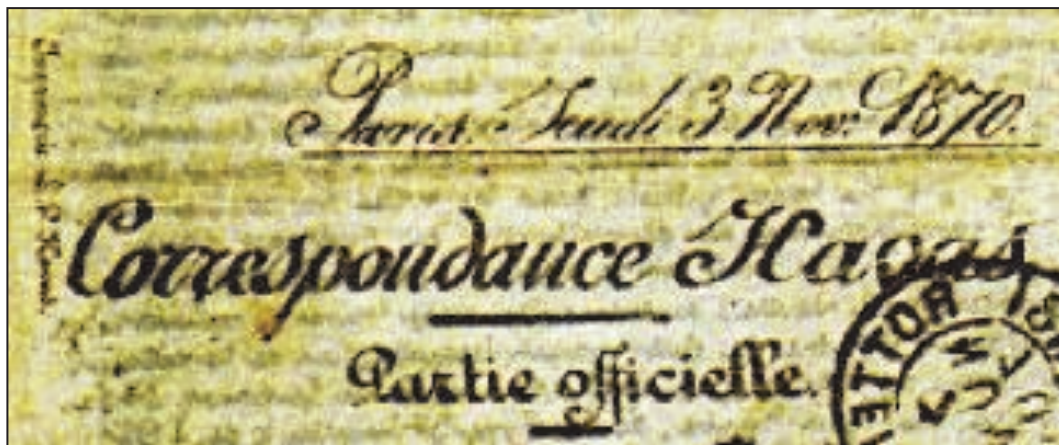 Paris. Jeudi 3 Nov. 1870.
Correspondance Havas
Partie officielle.
ETTOR